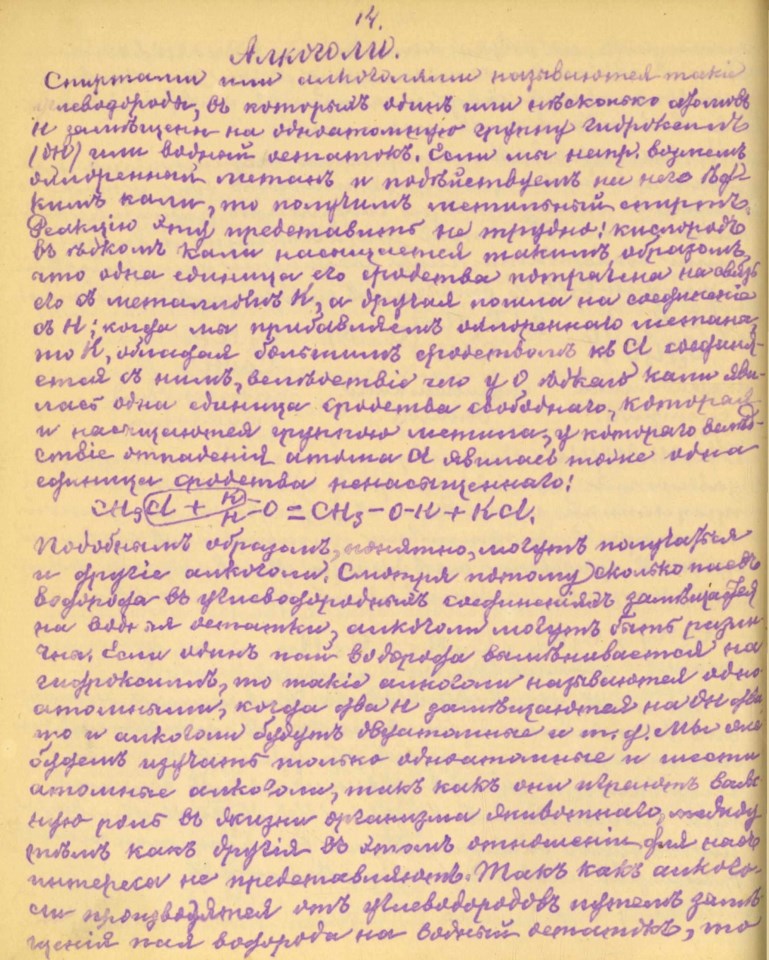 14.
Алкоголи.
Спиртами или алкоголями называются такіе
углеводороды, въ которыхъ одинъ или нѣсколько атомовъ
H замѣщены на одноатомную группу гидроксилъ
(OH) или водный остатокъ. Если мы напр. возьмемъ
охлоренный метанъ и подѣйствуемъ на него ѣд-
кимъ кали, то получимъ метильный спиртъ.
Реакцію эту представить не трудно: кислородъ
въ ѣдкомъ кали насыщается такимъ образомъ,
что одна единица его сродства потрачена на связь
его съ металломъ K, а другая пошла на соединеніе
съ H; когда мы прибавляемъ охлореннаго метана,
то K, обладая большимъ сродствомъ къ Cl соединя-
ется съ нимъ, вслѣдствіе чего у O ѣдкаго кали яви-
лась одна единица сродства свободнаго, которая
и насыщаются группою метила, у котораго вслѣд-
ствіе отпаденія атома Cl явилась тоже одна
единица сродства ненасыщеннаго:
CH3Cl + K H O = CH3-O-H + KCl.
Подобнымъ образомъ, понятно, могутъ получаться
и другіе алкоголи. Смотря потому, сколько паевъ
водорода въ углеводородныхъ соединеніяхъ замѣщается
на водные остатки, алкоголи могутъ быть разли-
чны. Если одинъ пай водорода вымѣнивается на
гидроксилъ, то такіе алкоголи называются одно
атомными, когда два H замѣщаются на OH два
то и алкоголи будутъ двуатомные и т. д. Мы же
будемъ изучать только одноатомные и шести
атомные алкоголи, такъ какъ они играютъ важ-
ную роль въ жизни организма животнаго, между
тѣмъ какъ другія въ этомъ отношеніи для насъ
интереса не представляютъ. Такъ какъ алкого-
ли производятся отъ углеводородовъ путемъ замѣ
щенія пая водорода на водный остатокъ, то